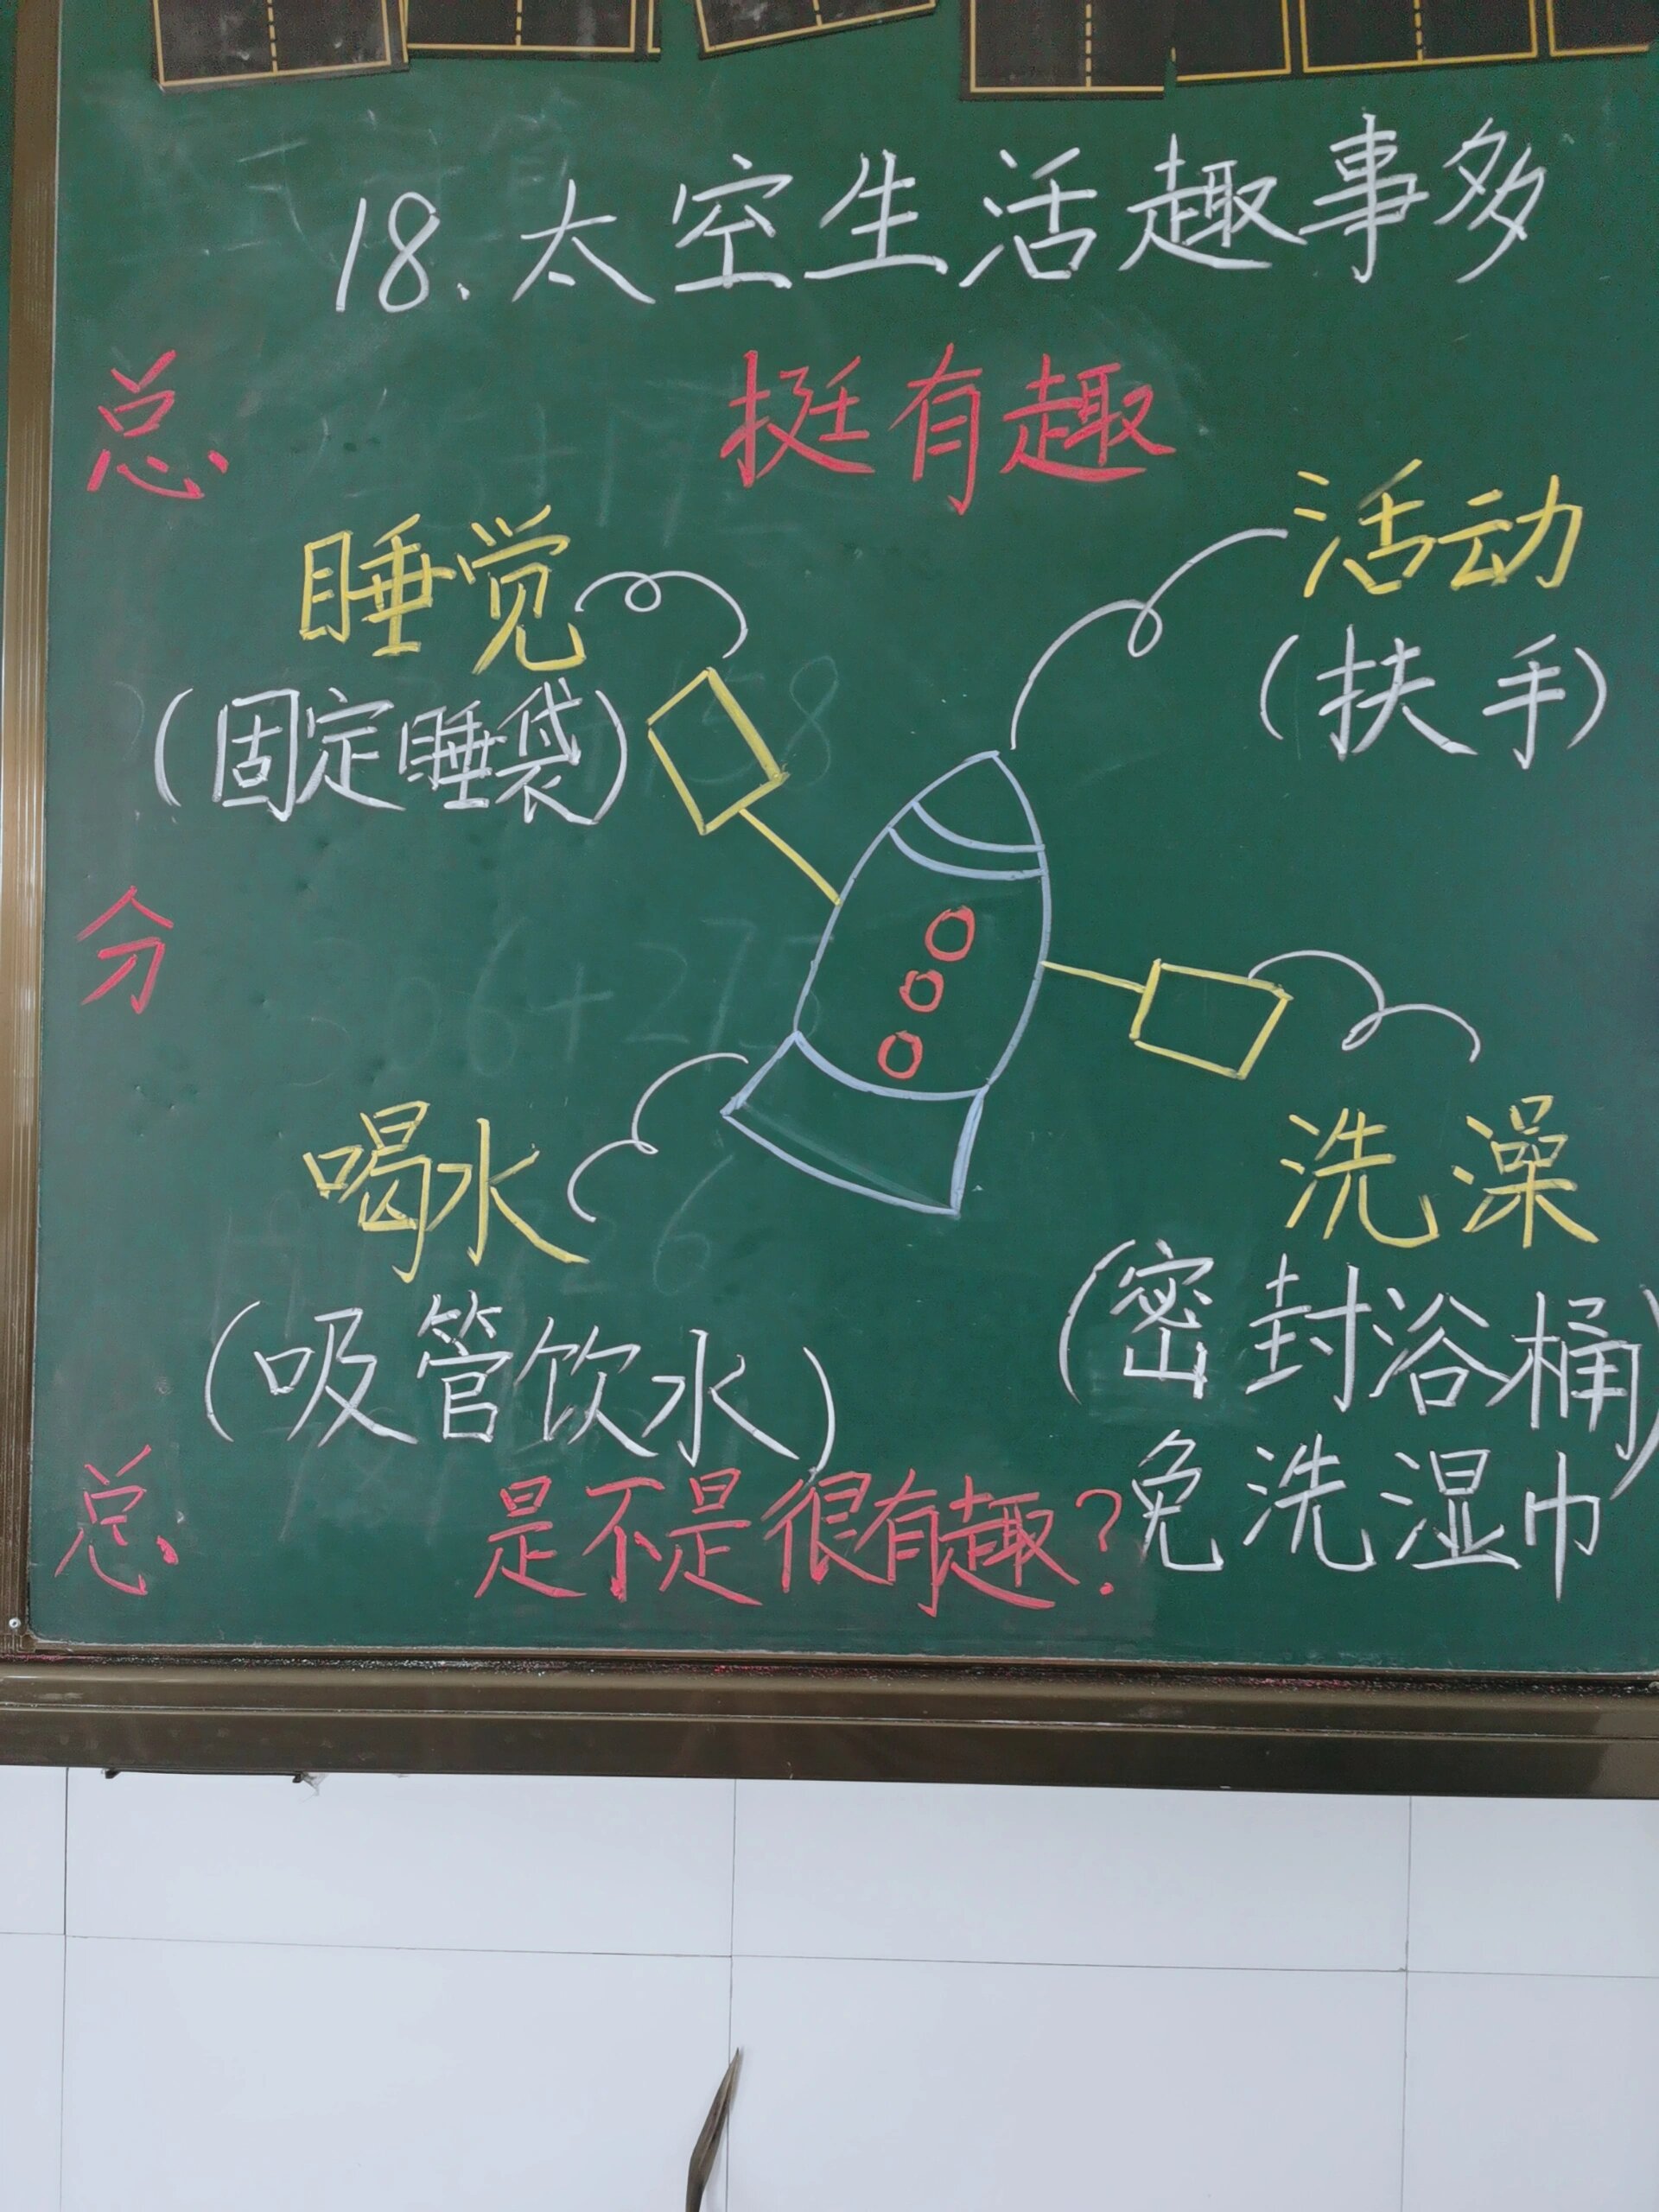 18.太空生活趣事多
总 挺有趣
睡觉 活动
(固定睡袋) (扶手)
分
喝水 洗澡
(吸管饮水) (密封浴桶)
免洗湿巾
总 是不是很有趣?